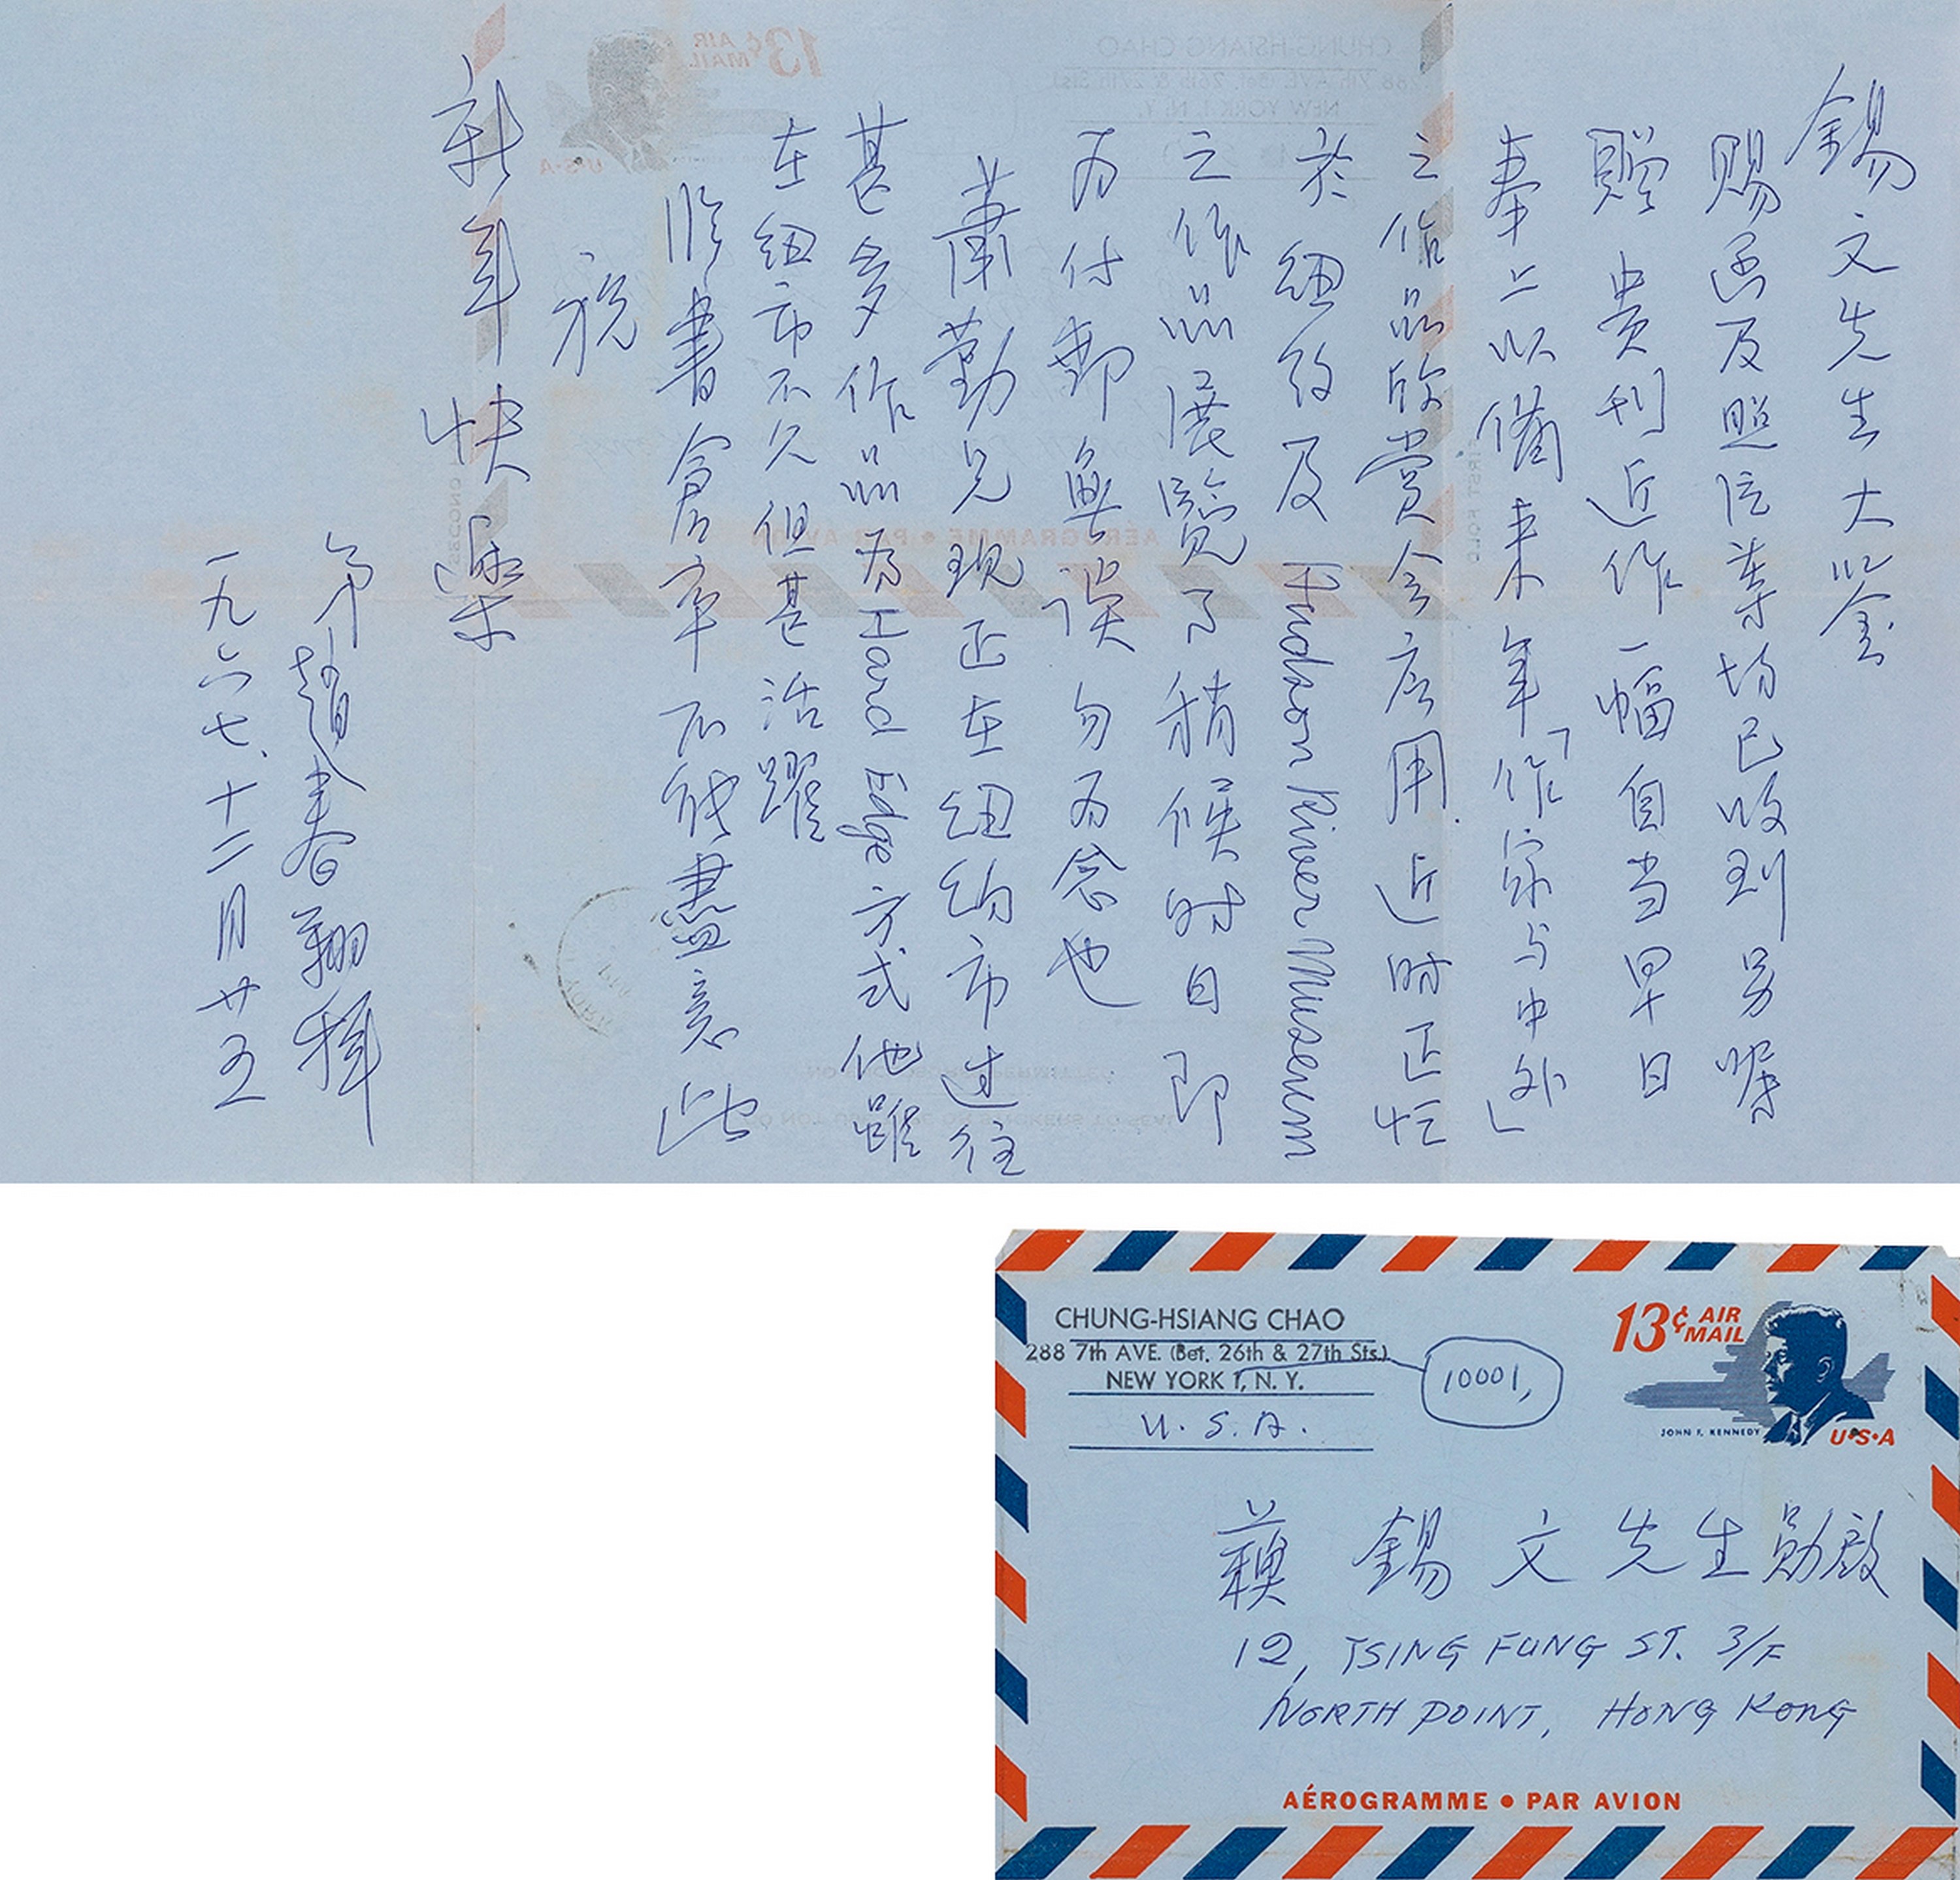 錫文先生大鑒
賜函及照片等均已收到另囑
贈貴刊近作一幅自当早日
奉上以備来年「作家与中外」
之作品欣賞会应用.近时正忙
於紐約及Hudson River Museum
之作品展覽了稍候时日即
为付郵無误勿为念也
蕭勤兄現正在紐約市过往
甚多作品为Hard Edge方式他雖
在紐市不久但甚活躍
临書倉卒不能盡意此
祝
新年快樂
弟趙春翔拜
一九六七、十二月廿五
CHUNG-HSIANG CHAO
288 7th AVE. (Bet. 26th & 27th Sts.)
NEW YORK 1, N. Y.
10001,
U.S.A.
13¢ AIR MAIL
JOHN F. KENNEDY
U·S·A
錫文先生勛啟
12, TSING FUNG ST. 3/F
NORTH POINT, HONG KONG
AÉROGRAMME • PAR AVION